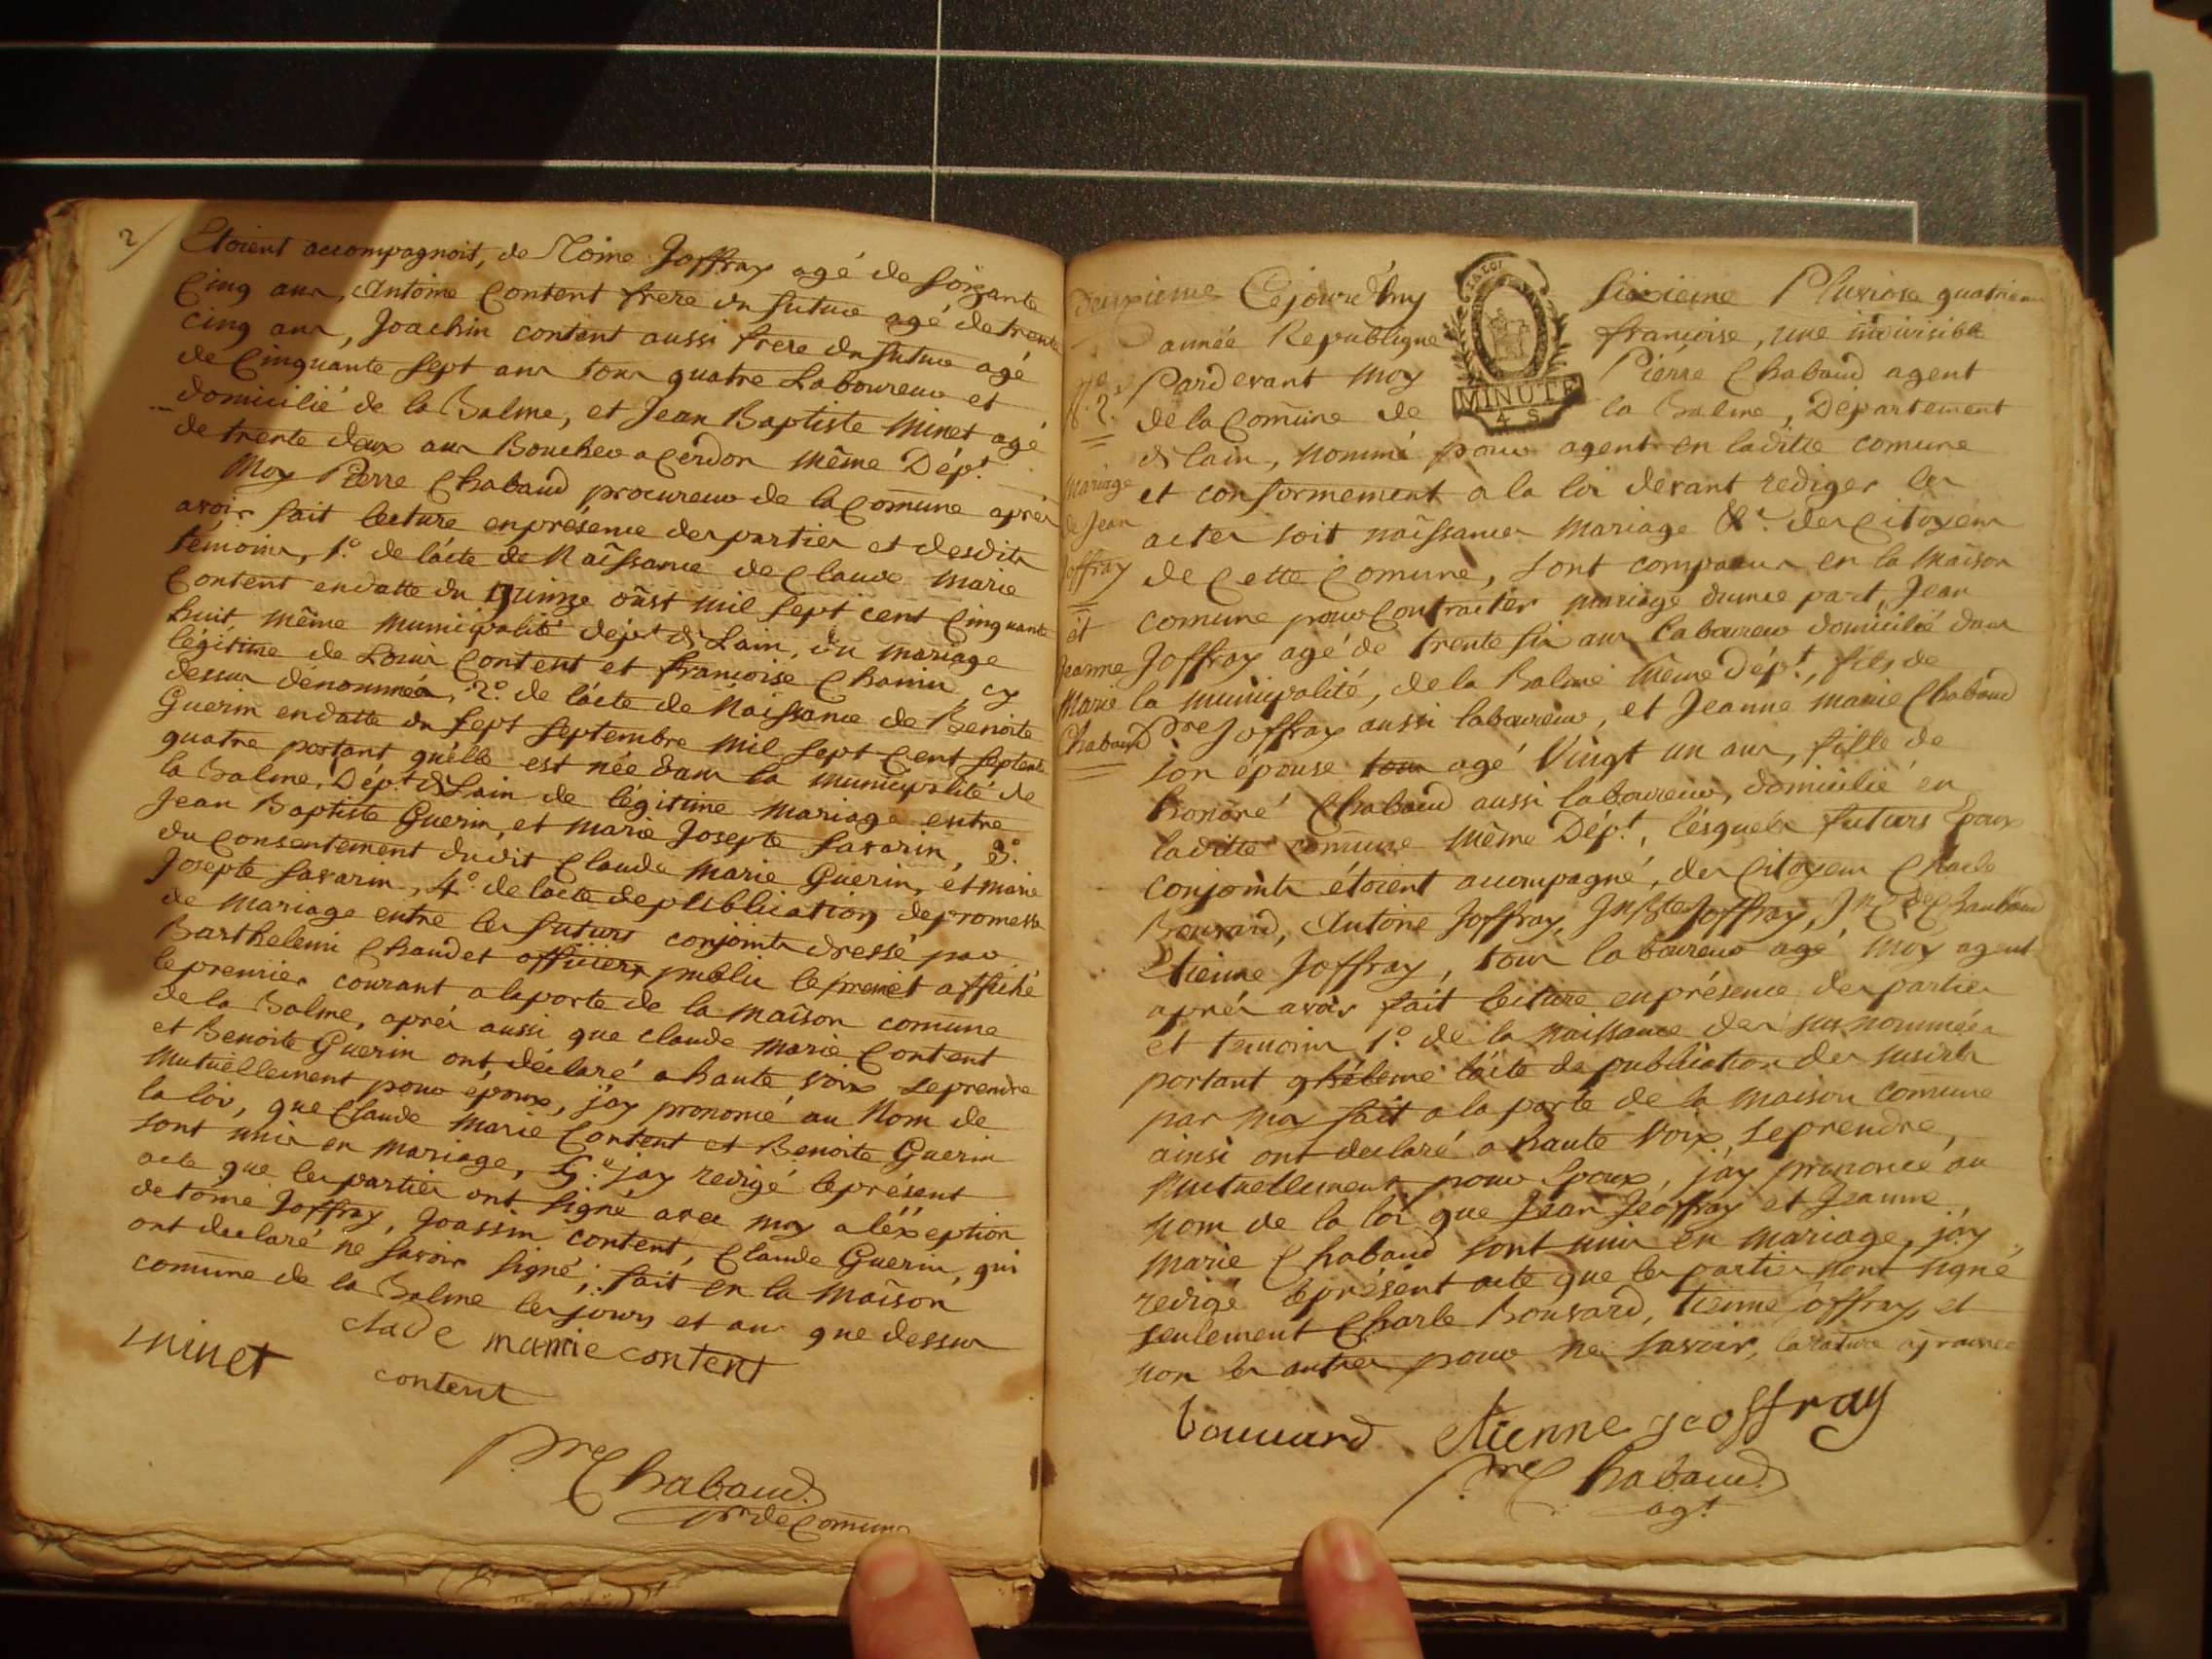 2/
Etoient accompagnoit, de Toine Joffray agé de soixante
Cinq ans, Antoine Content frere du futur agé de trente
cinq ans, Joachin content aussi frere du futur agé
de Cinquante sept ans tous quatre Laboureur et
domicilié de la Balme, et Jean Baptiste Minet agé
de trente deux ans Boucher a Cerdon même Dépt.
Moy Pierre Chabaud procureur de la Comune aprés
avoir fait lecture en présence des partier et desdits
témoins, 1º. de l'acte de Naissance de Claude Marie
Content en datte du Quinze oûst mil sept cent Cinquante
huit, même municipalité dépt. de Lain, du mariage
légitime de Louis Content et françoise Chanu, cy
dessus dénommés, 2º. de l'acte de Naissance de Benoite
Guerin en datte du sept septembre mil sept Cent septente
quatre portant qu'elle est née dans la municipalité de
la Balme, Dépt. de Lain de légitime mariage entre
Jean Baptiste Guerin, et marie Josepte Savarin, 3º.
du Consentement dudit Claude Marie Guerin, et marie
Josepte Savarin, 4º. de lacte de publication de promesse
de mariage entre les futurs conjoints dressé par
Barthelemi Chaudet officiers public le premier et affiché
le premier courant a la porte de la maison comune
de la Balme, aprés aussi que claude marie Content
et Benoite Guerin ont déclaré a haute voix se prendre
mutuellement pour époux, j'ay prononcé au Nom de
la loy, que Claude Marie Content et Benoite Guerin
sont unis en mariage, 5º. j'ay redigé le présent
acte que les partier ont signé avec moy a l'éxception
de toine Joffray, Joassin content, Claude Guerin, qui
ont declaré ne savoir signé; fait en la Maison
comune de la Balme les jours et an que dessus
clade mamie content
minet
content
Pre Chabaud
pr de Comune
deuxieme
Nº. 2.
Mariage
de Jean
Joffray
et
Jeanne
Marie
Chabaud
Cejourd'huy sixieme Pluviose quatrieme
année Republique francoise, une indivisible
Pardevant moy Pierre Chabaud agent
de la Comune de la Balme, Département
de lain, nommé pour agent en laditte comune
et conformement a la loi devant rediger les
actes soit naissances mariage &c. des Citoyens
de Cette Comune, sont comparus en la maison
comune pour Contracter mariage d'une part, Jean
Joffray agé de trente six ans laboureur domicilié dans
la municipalité, de la Balme même Dépt., fils de
Pre Joffray aussi laboureur, et Jeanne marie Chabaud
son épouse tous agé Vingt un ans, fille de
honoré Chabaud aussi laboureur, domicilié en
laditte comune même Dépt., lésquels futurs Epoux
conjoints étoient accompagné, des Citoyens Charle
Bouvard, Antoine Joffray, Jn Bte Joffray,
Etienne Joffray, tous laboureur agé moy agent
aprés avoir fait lecture en présence des partier
et temoins 1º. de la naissance des susnommées
portant l'acte de publication des susdits
par moy fait a la porte de la maison comune
ainsi ont declaré a haute voix, se prendre,
Mutuellement pour Epoux, j'ay prononcé au
nom de la loi que Jean Jeoffray et Jeanne
Marie Chabaud sont unis en mariage, j'ay
redigé le présent acte que les partier nont signé
seulement Charle Bouvard, tienne joffray, et
non les autres pour ne savoir, la rature
MINUTE
4 S.
LA LOI
bouuard etienne jeoffray
Pre Chabaud
agt.